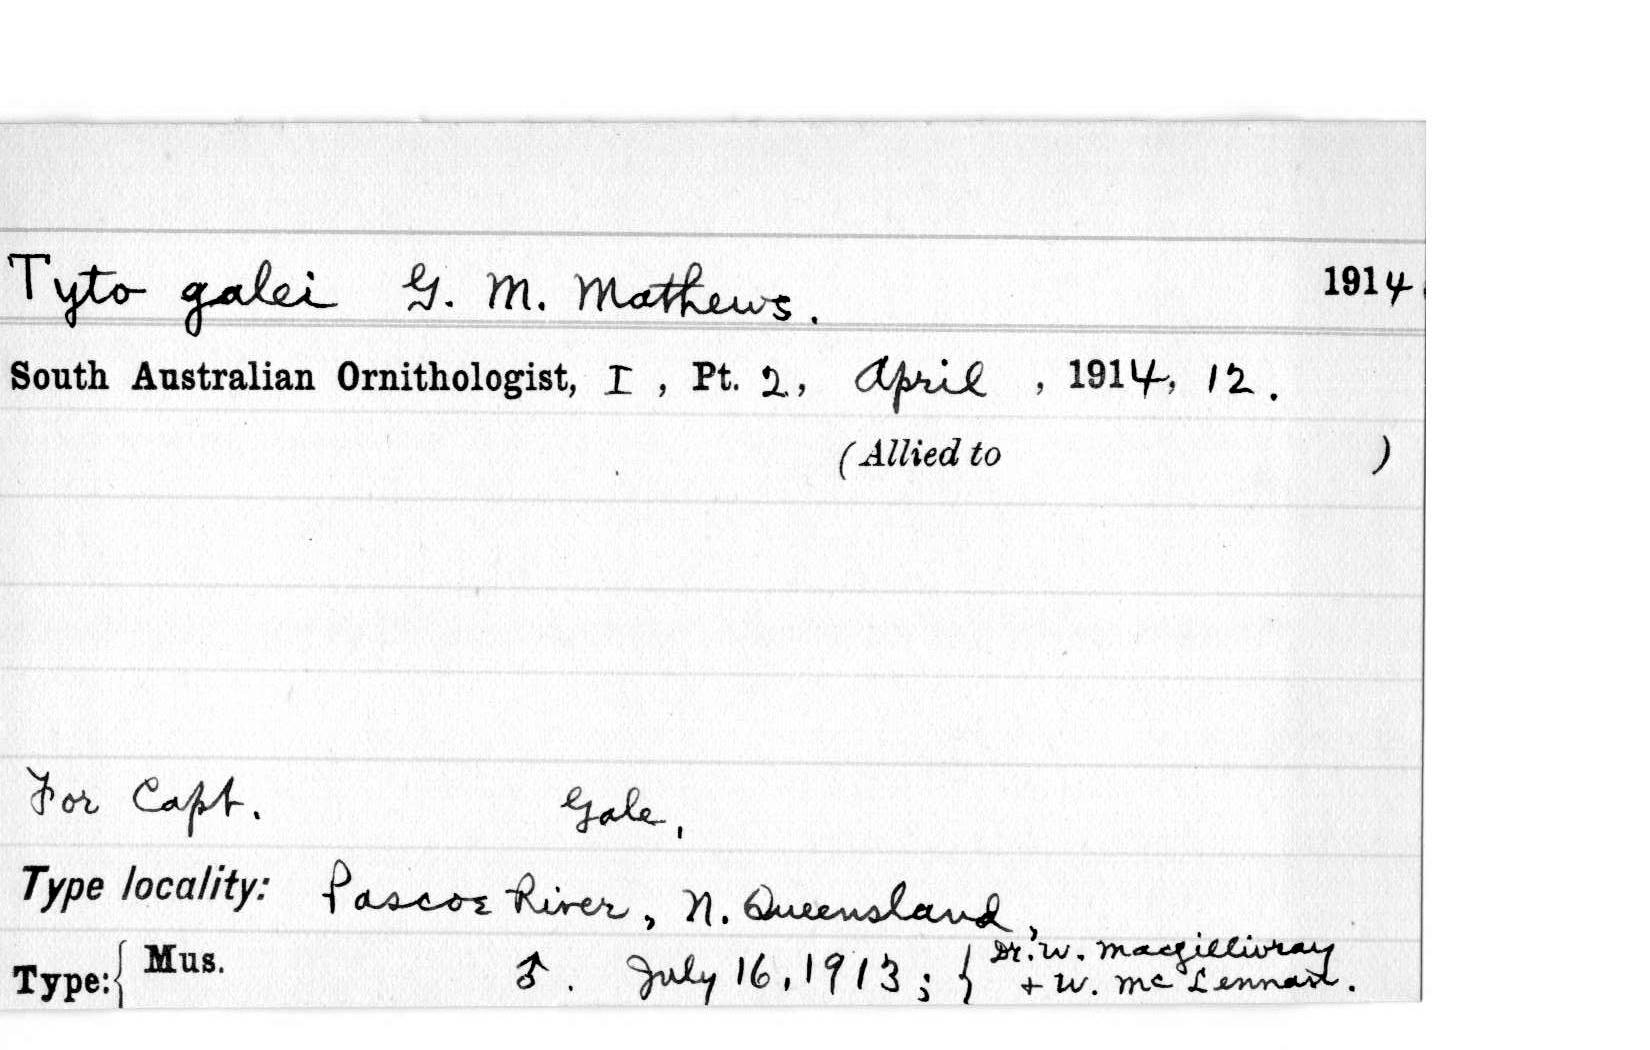 Tyto galei G. M. Mathews. 1914.
South Australian Ornithologist, I, Pt. 2, April, 1914, 12.
(Allied to )
For Capt. Gale,
Type locality: Pascoe River, N. Queensland,
Type: { Mus. ♂. July 16, 1913; { Dr. W. Macgillivray
+ W. McLennan.